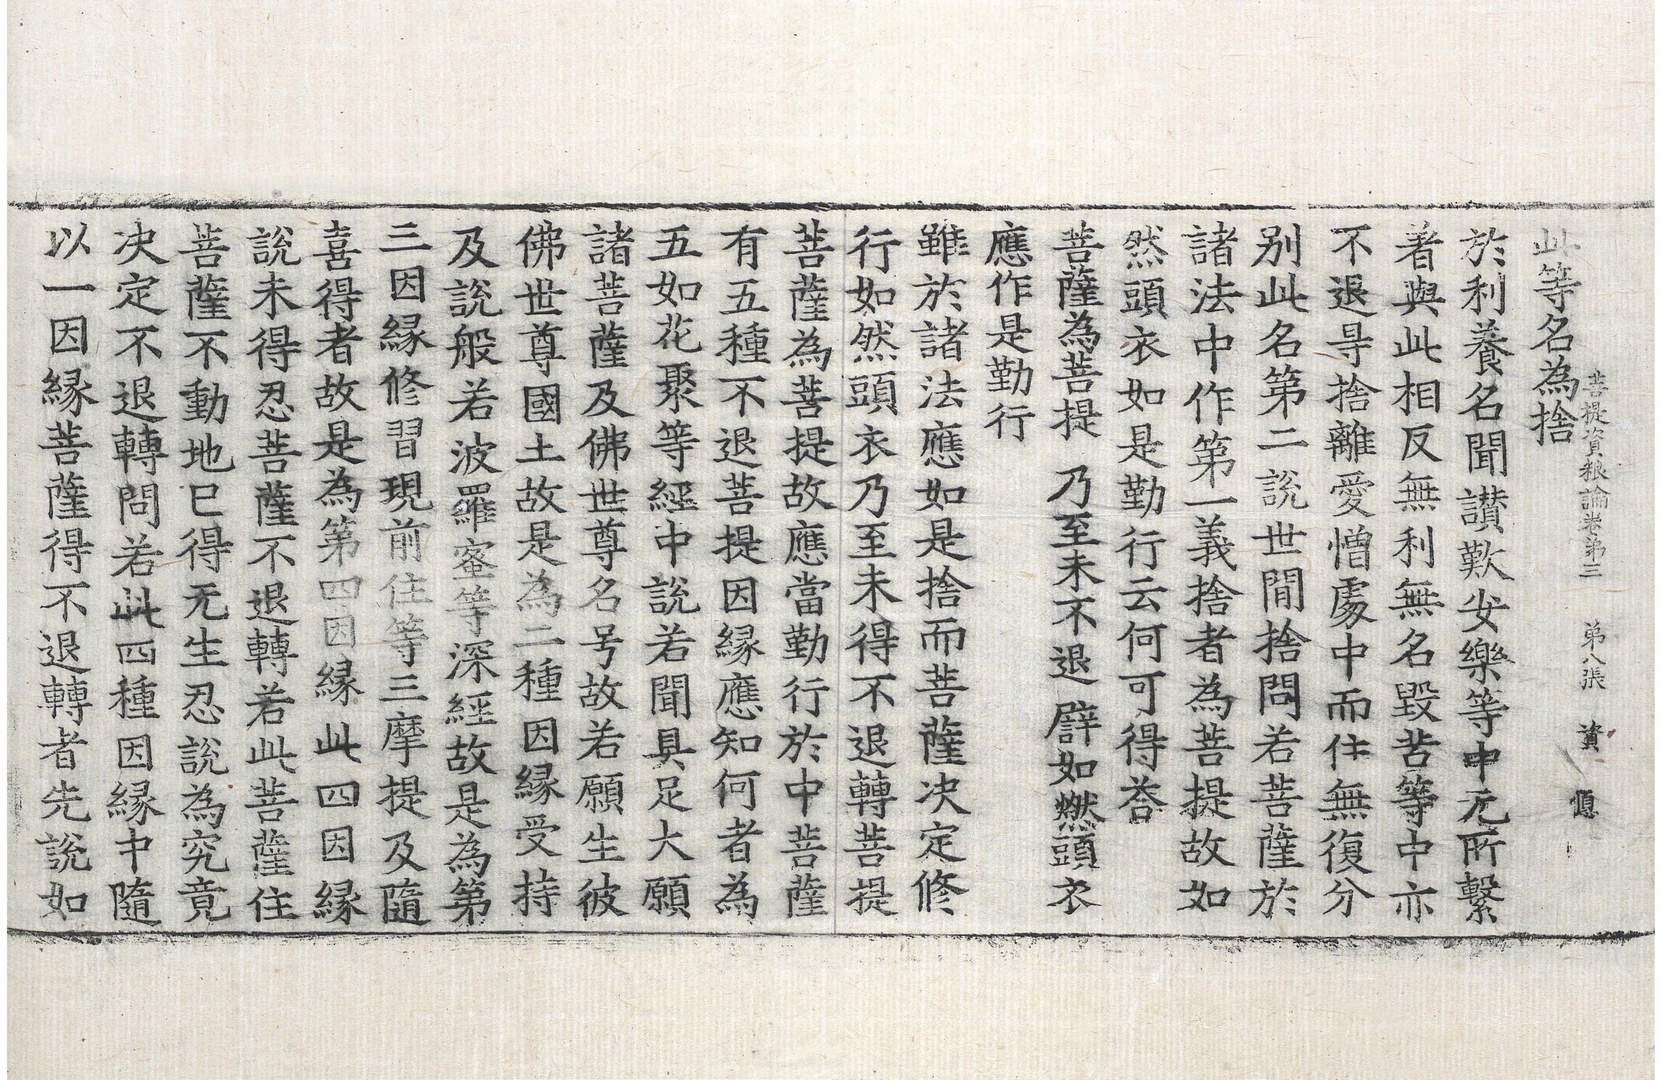 菩提資粮論卷第三　第八張　資
此等名為捨
於利養名聞讃歎安樂等中无所繫
著與此相反無利無名毀苦等中亦
不退㝵捨離愛憎處中而住無復分
别此名第二說世間捨問若菩薩於
諸法中作第一義捨者為菩提故如
然頭衣如是勤行云何可得荅
菩薩為菩提　乃至未不退　譬如燃頭衣
應作是勤行
雖於諸法應如是捨而菩薩决定修
行如然頭衣乃至未得不退轉菩提
菩薩為菩提故應當勤行於中菩薩
有五種不退菩提因緣應知何者為
五如花聚等經中說若聞具足大願
諸菩薩及佛世尊名号故若願生彼
佛世尊國土故是為二種因緣受持
及說般若波羅蜜等深經故是為第
三因緣修習現前住等三摩提及隨
喜得者故是為第四因緣此四因緣
說未得忍菩薩不退轉若此菩薩住
菩薩不動地已得无生忍說為究竟
决定不退轉問若此四種因緣中隨
以一因緣菩薩得不退轉者先說如